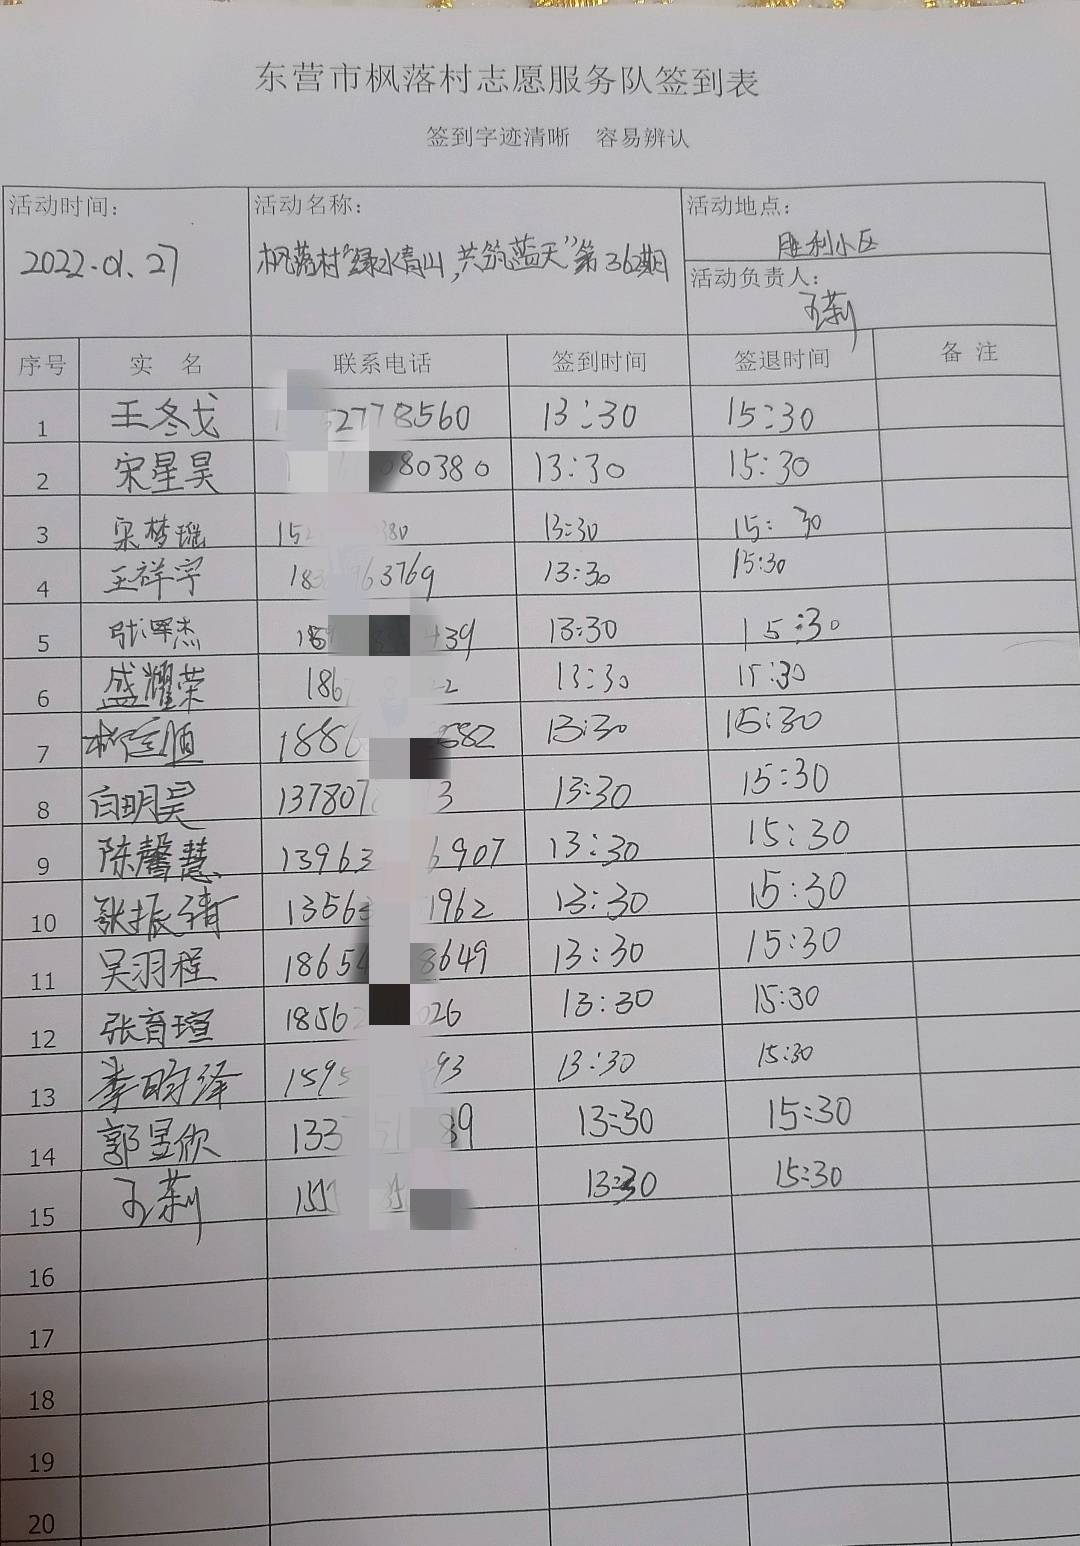 东营市枫落村志愿服务队签到表
签到字迹清晰 容易辨认
活动时间: 活动名称: 活动地点:
2022.01.27 枫落村"绿水青山,共筑蓝天"第36期 胜利小区
活动负责人:
王莉
序号 实 名 联系电话 签到时间 签退时间 备 注
1 王冬戈 2778560 13:30 15:30
2 宋星昊 80380 13:30 15:30
3 宋梦瑶 15 380 13:30 15:30
4 王祥宇 183 963769 13:30 15:30
5 张泽杰 439 13:30 15:30
6 盛耀荣 186 22 13:30 15:30
7 1886 682 13:30 15:30
8 白明昊 137807 3 13:30 15:30
9 陈馨慧 13963 6907 13:30 15:30
10 张振清 13563 1962 13:30 15:30
11 吴羽程 18654 8649 13:30 15:30
12 张育瑄 1856 026 13:30 15:30
13 李昀泽 1595 93 13:30 15:30
14 郭昱欣 133 51 89 13:30 15:30
15 王莉 13:30 15:30
16
17
18
19
20